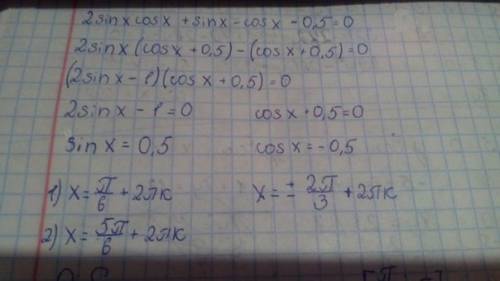 2sinx cosx + sinx - cosx - 0,5=0
2sinx (cosx + 0,5) - (cosx + 0,5) = 0
(2sinx - 1)(cosx + 0,5) = 0
2sinx - 1 = 0 cosx + 0,5 = 0
sinx = 0,5 cosx = -0,5
1) x = π/6 + 2πк x = ± 2π/3 + 2πк
2) x = 5π/6 + 2πк